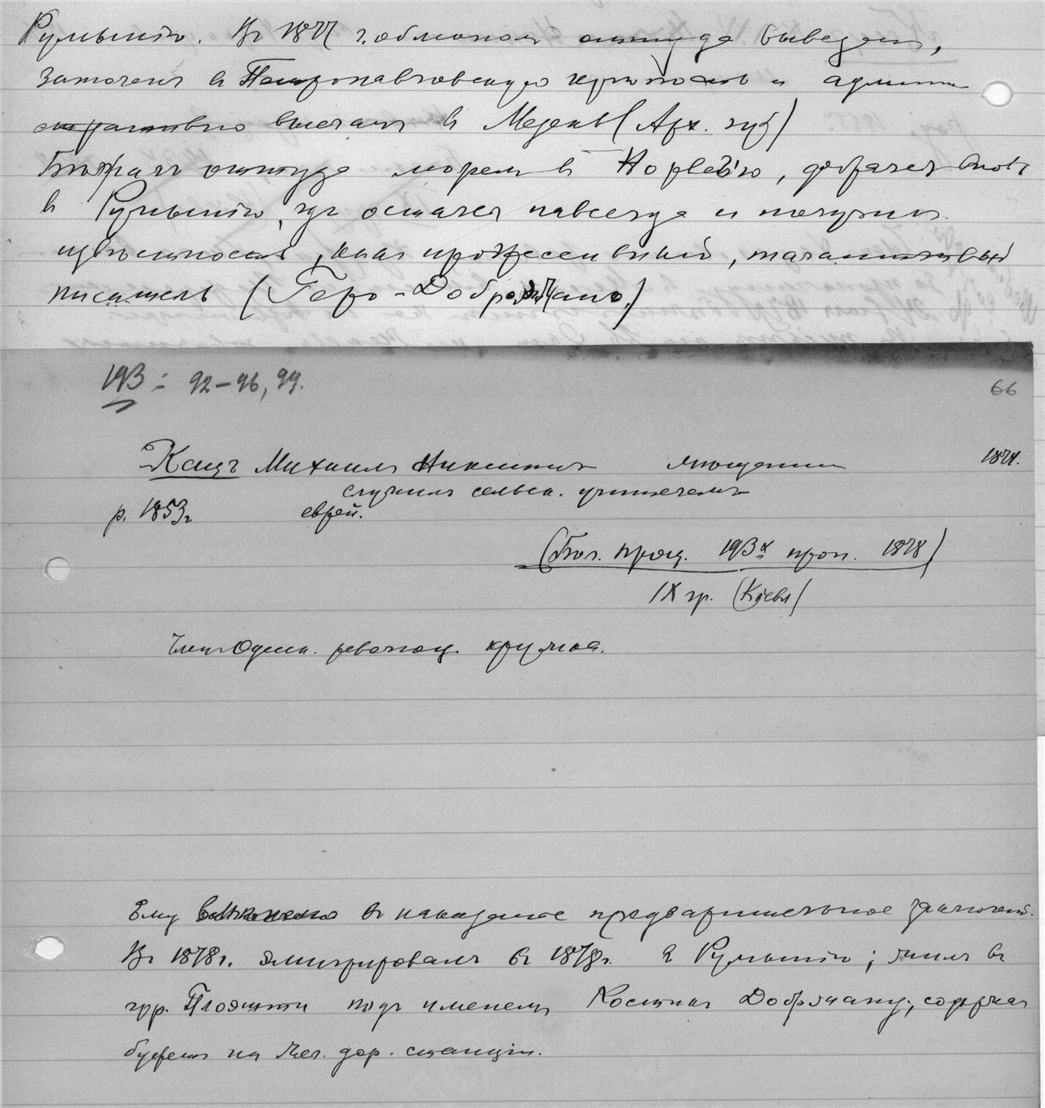 Румынію. Въ 1877 г. обманомъ оттуда вывезенъ,
заточенъ въ Петропавловскую крѣпость и админи
стративно высланъ въ Мезень (Арх. губ)
Бѣжалъ оттуда моремъ въ Норвегію, добрался вновь
въ Румынію, гдѣ остался навсегда и получилъ
извѣстность, какъ прогрессивный, талантливый
писатель (Геро-Доброджану.)
193 = 92–96, 99.
66
Кацъ Михаилъ Никитичъ
1874.
служилъ сельск. учителемъ
р. 1853 г.
еврей.
(Бол. проц. 193х проп. 1878)
IX гр. (Кіевл)
Членъ Одесск. революц. кружка.
Ему вмѣнено въ наказаніе предварительное заключеніе.
Въ 1878 г. эмигрировалъ въ 1878 г. въ Румынію; жилъ въ
гор. Плоэшти подъ именемъ Костики Добрджану, содержа
буфетъ на жел. дор. станціи.